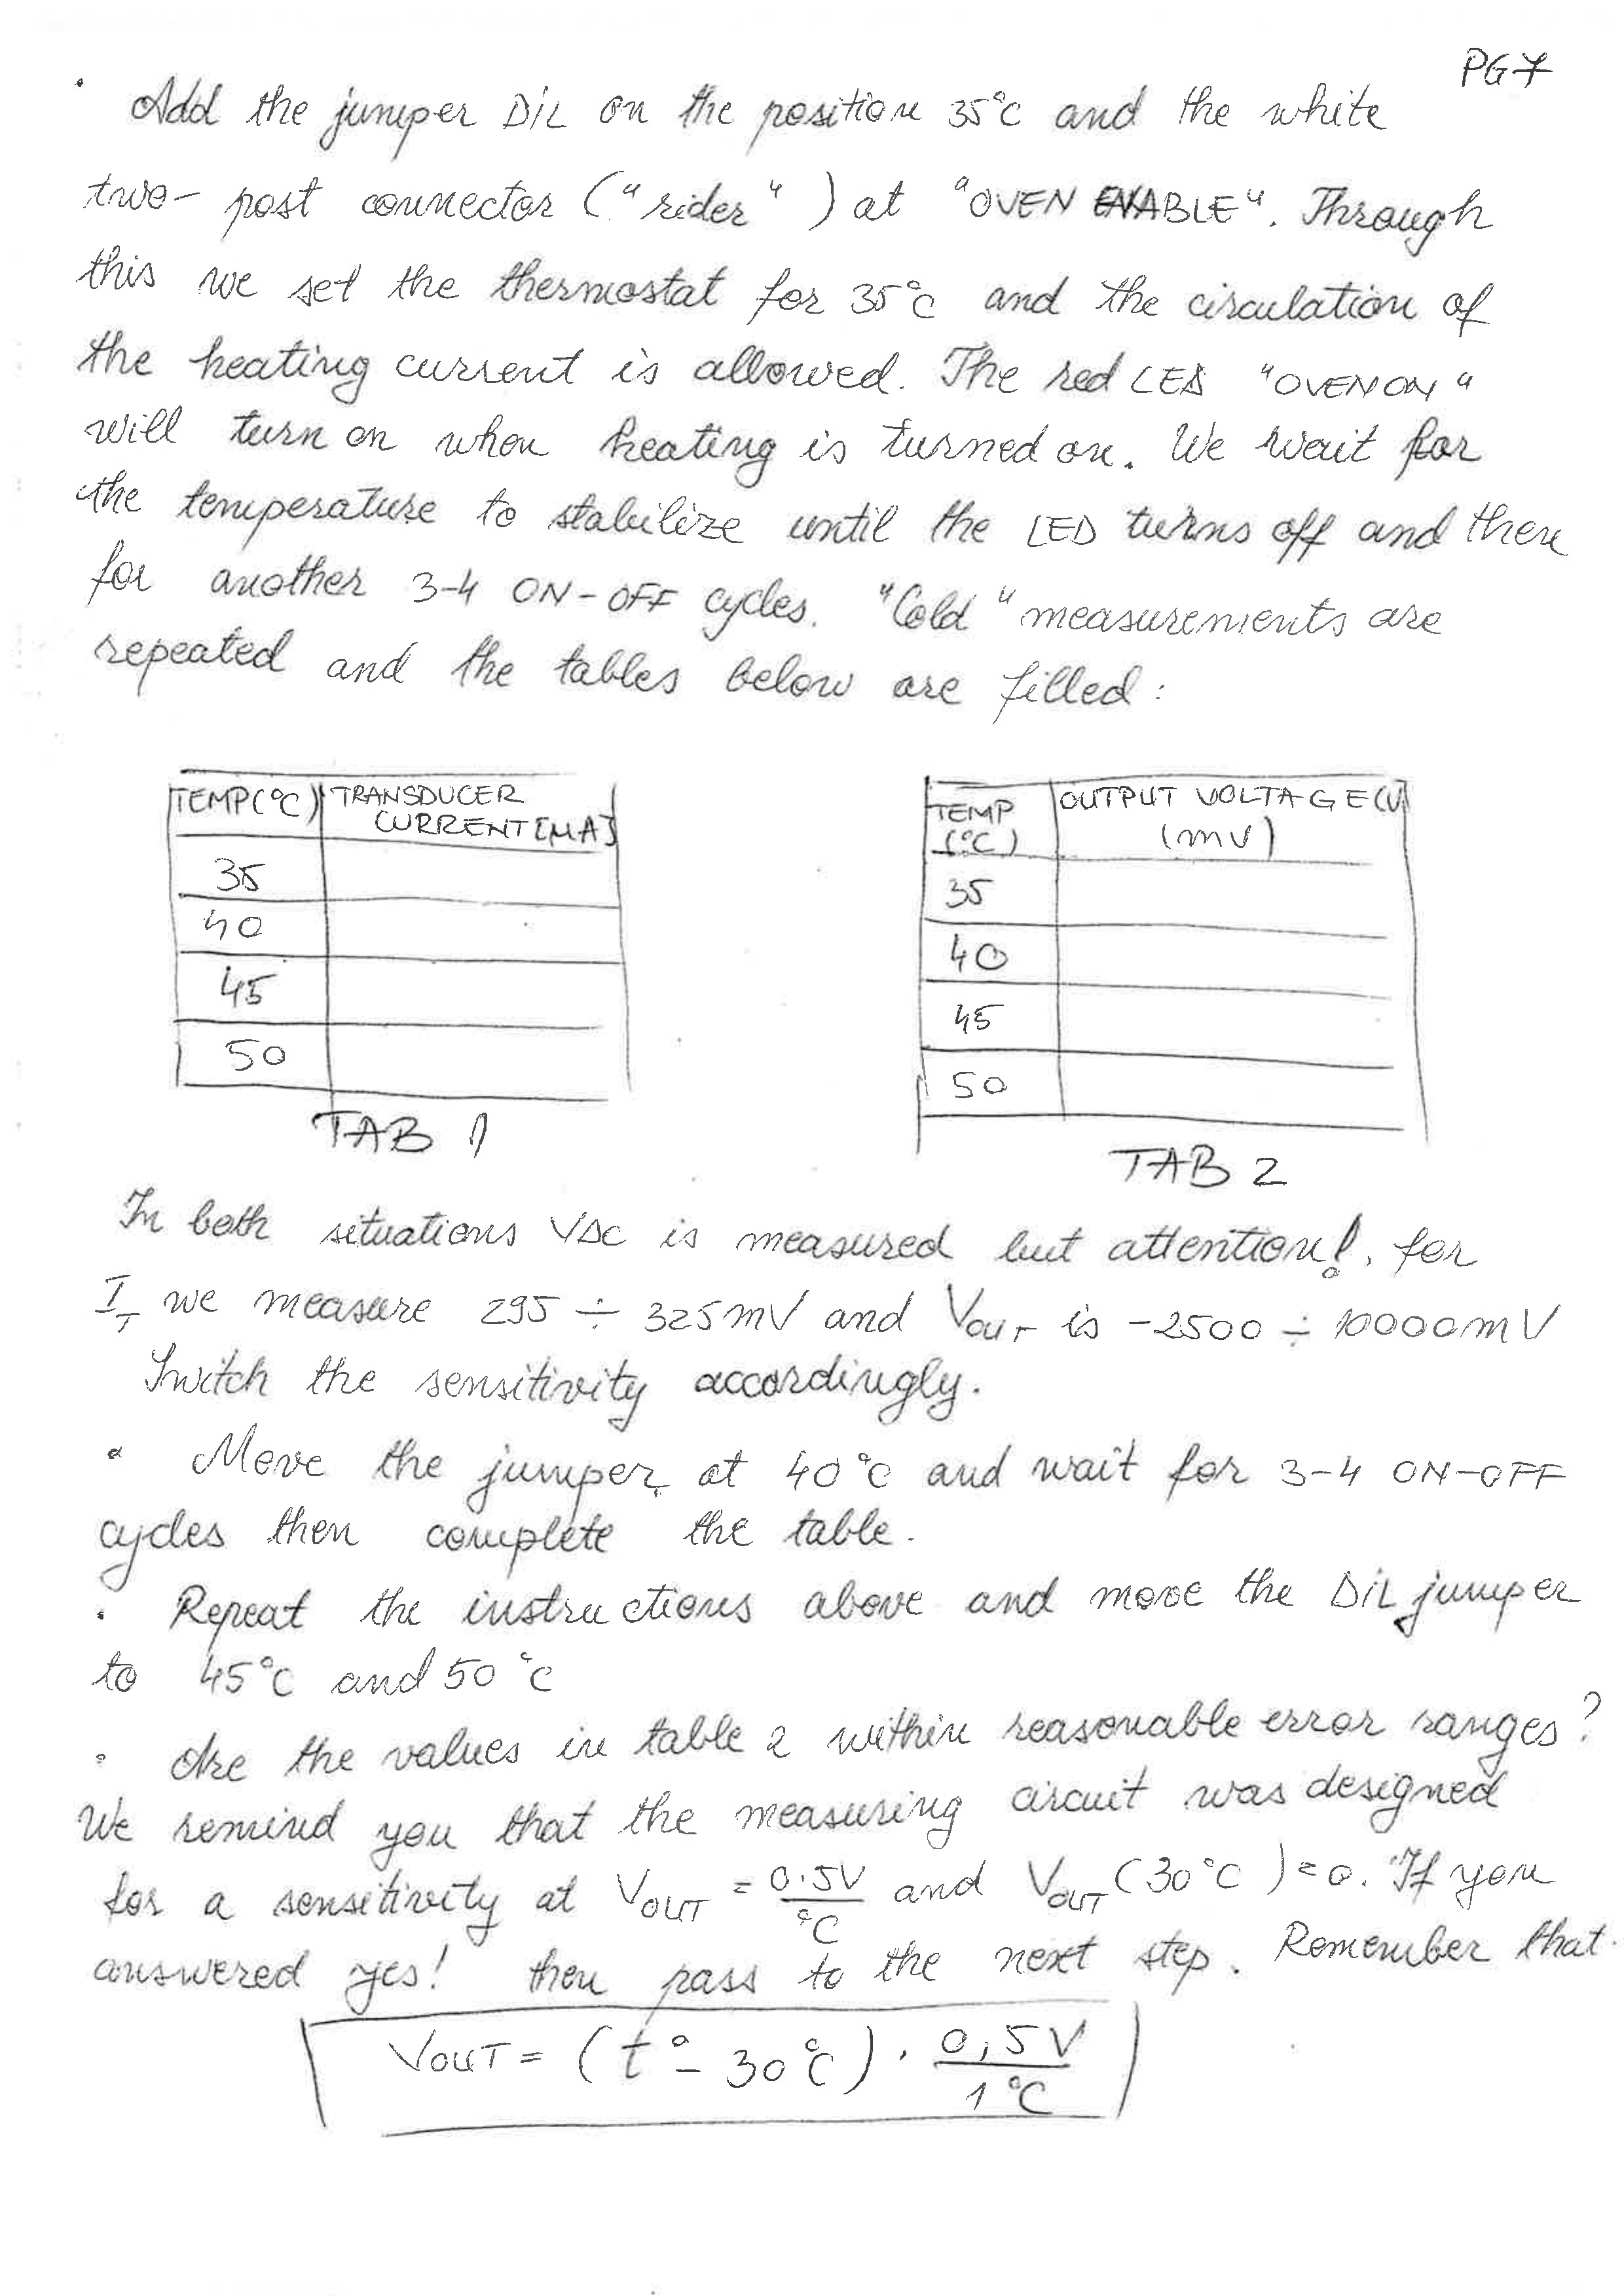 PG 7
• Add the jumper DiL on the position 35°C and the white
two- post connector ("rider") at "OVEN ENABLE". Through
this we set the thermostat for 35°C and the circulation of
the heating current is allowed. The red LED "OVEN ON"
will turn on when heating is turned on. We wait for
the temperature to stabilize until the LED turns off and then
for another 3-4 ON-OFF cycles. "Cold" measurements are
repeated and the tables below are filled:
TEMP(°C) TRANSDUCER
CURRENT [μA]
35
40
45
50
TAB 1
TEMP OUTPUT VOLTAGE (V)
(°C) (mV)
35
40
45
50
TAB 2
In both situations VDC is measured but attention!, for
I_T we measure 295 ÷ 325mV and VOUT is -2500 ÷ 10000mV
Switch the sensitivity accordingly.
• Move the jumper at 40°C and wait for 3-4 ON-OFF
cycles then complete the table.
• Repeat the instructions above and move the DiL jumper
to 45°C and 50°C
• Are the values in table 2 within reasonable error ranges?
We remind you that the measuring circuit was designed
for a sensitivity at VOUT = 0.5V/°C and VOUT (30°C) = 0. If you
answered yes! then pass to the next step. Remember that.
VOUT = (t° - 30°C) · 0,5V/1°C